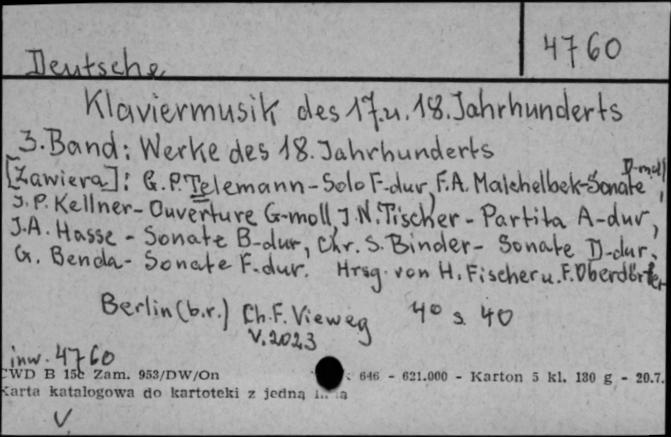 4760
Deutsche
Klaviermusik des 17.u.18.Jahrhunderts
3.Band: Werke des 18.Jahrhunderts
[Zawiera]: G.P.Telemann-Solo F-dur, F.A. Maichelbek-Sonate D-moll,
J.P.Kellner-Ouverture G-moll, J.N.Tischer-Partita A-dur,
J.A. Hasse - Sonate B-dur, Chr. S. Binder- Sonate D-dur,
G. Benda- Sonate F-dur. Hrsg. von H.Fischer u. F.Oberdörfer
Berlin (b.r.) Ch.F. Vieweg 4° s. 40
V.2023
inw. 4760
CWD B 15c Zam. 953/DW/On 646 - 621.000 - Karton 5 kl. 180 g - 20.7.
Karta katalogowa do kartoteki z jedną
V